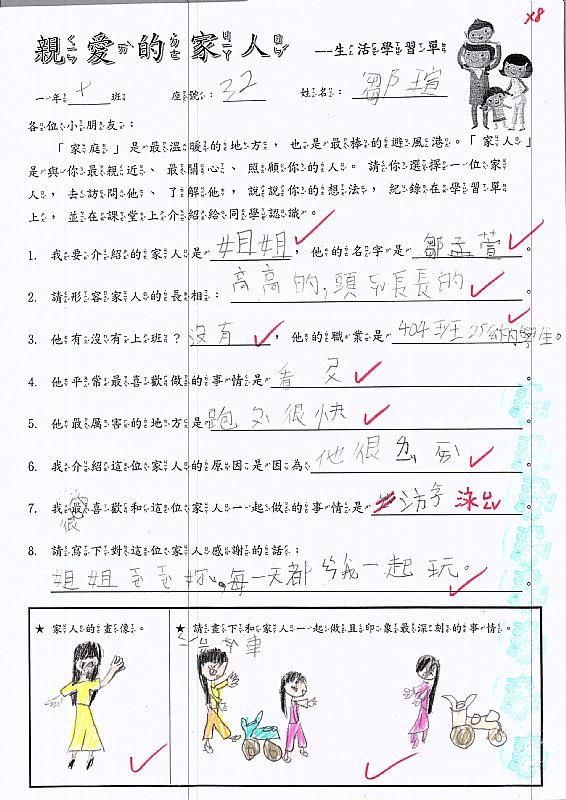 x8
親愛的家人 —生活學習單
一年十班 座號：32 姓名：鄒 瑄
各位小朋友：
「家庭」是最溫暖的地方，也是最棒的避風港。「家人」
是與你最親近、最關心、照顧你的人。請你選擇一位家
人，去訪問他、了解他，說說你的想法，紀錄在學習單
上，並在課堂上介紹給同學認識。
1. 我要介紹的家人是姐姐，他的名字是鄒孟萱。
2. 請形容家人的長相：高高的,頭 長長的
3. 他有沒有上班？沒有，他的職業是404班25 學生。
4. 他平常最喜歡做的事情是看
5. 他最厲害的地方是跑 很快
6. 我介紹這位家人的原因是因為他很
7. 我最喜歡和這位家人一起做的事情是 泳
很
8. 請寫下對這位家人感謝的話：
姐姐 每一天都 我一起玩。
★ 家人的畫像。
★ 請畫下和家人一起做且印象最深刻的事情。
車